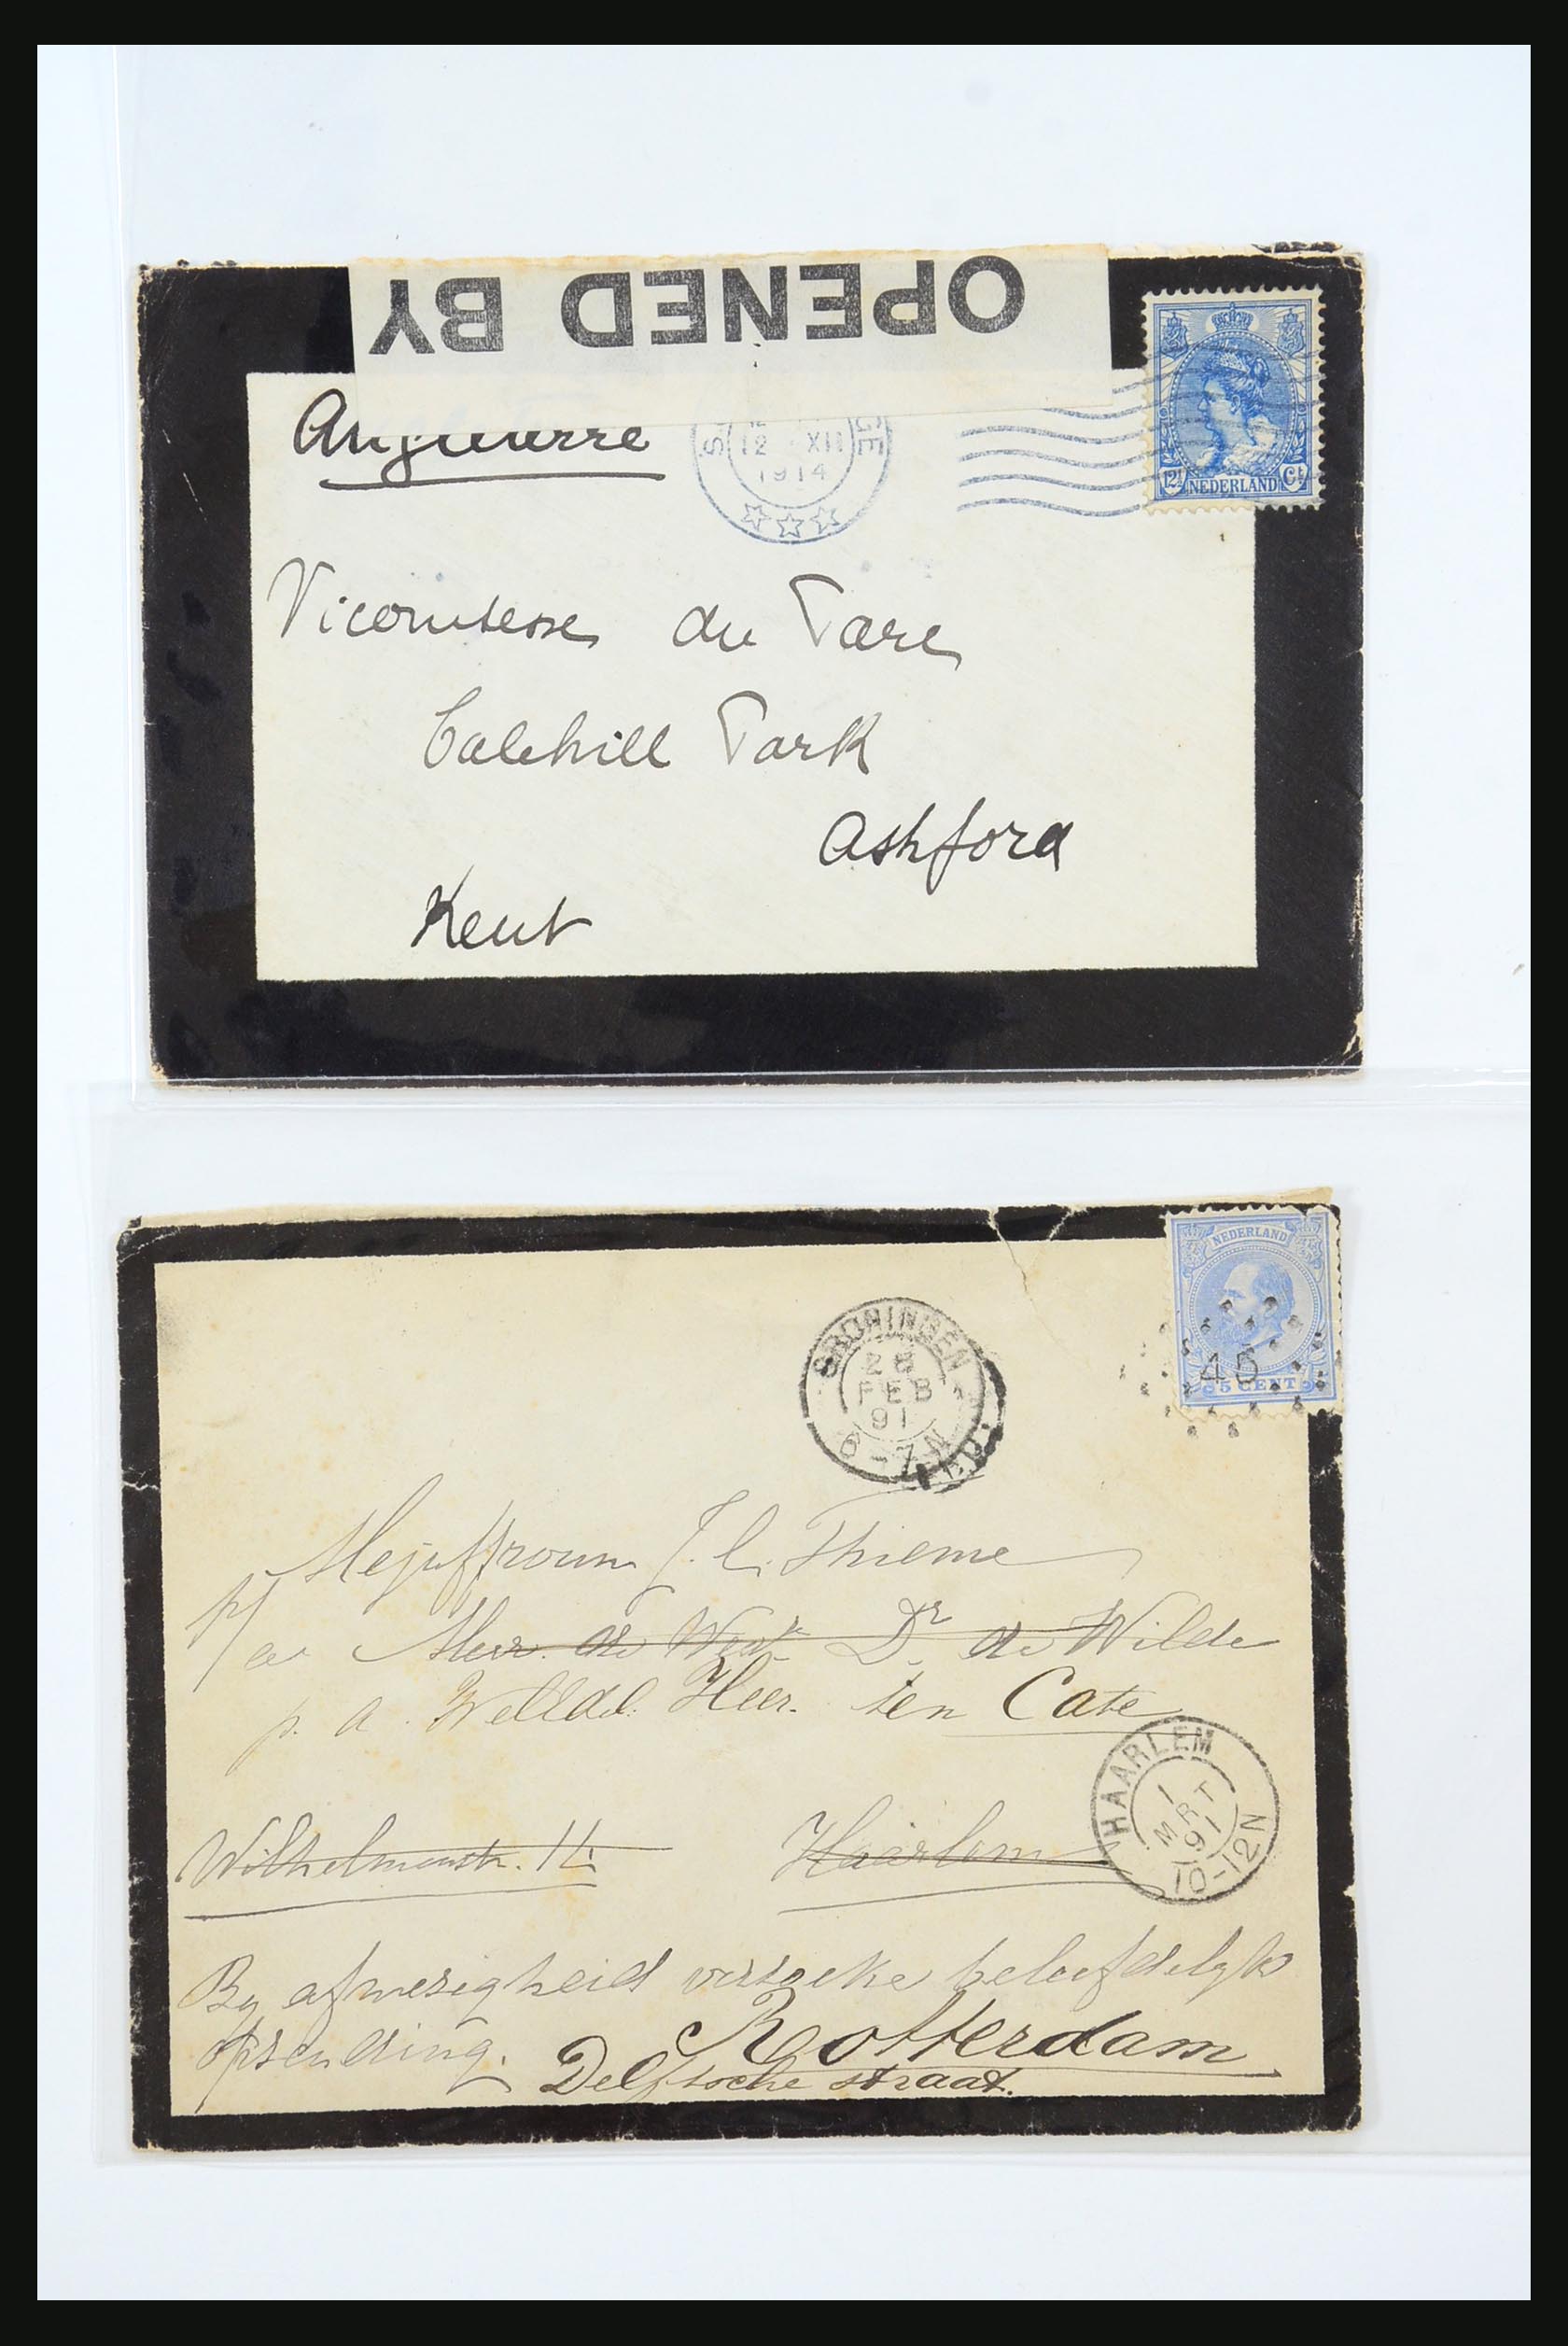 OPENED BY
Angleterre
S GE
12 XII
1914
12½ NEDERLAND Ct
Vicomtesse du Parc
Calehill Park
Ashford
Kent
NEDERLAND
45
5 CENT
GRONINGEN
28
FEB
91
6-7N
Mejuffrouw J. C. Thieme
p/a den Heer de Dr. de Wilde
p. a. WelEd. Heer. ten Cate
HAARLEM
1 MRT
91
10-12N
Wilhelminastr. 14 Haarlem
By afwezigheid verzoeke beleefdelyk
opzending. Rotterdam
Delftsche straat.